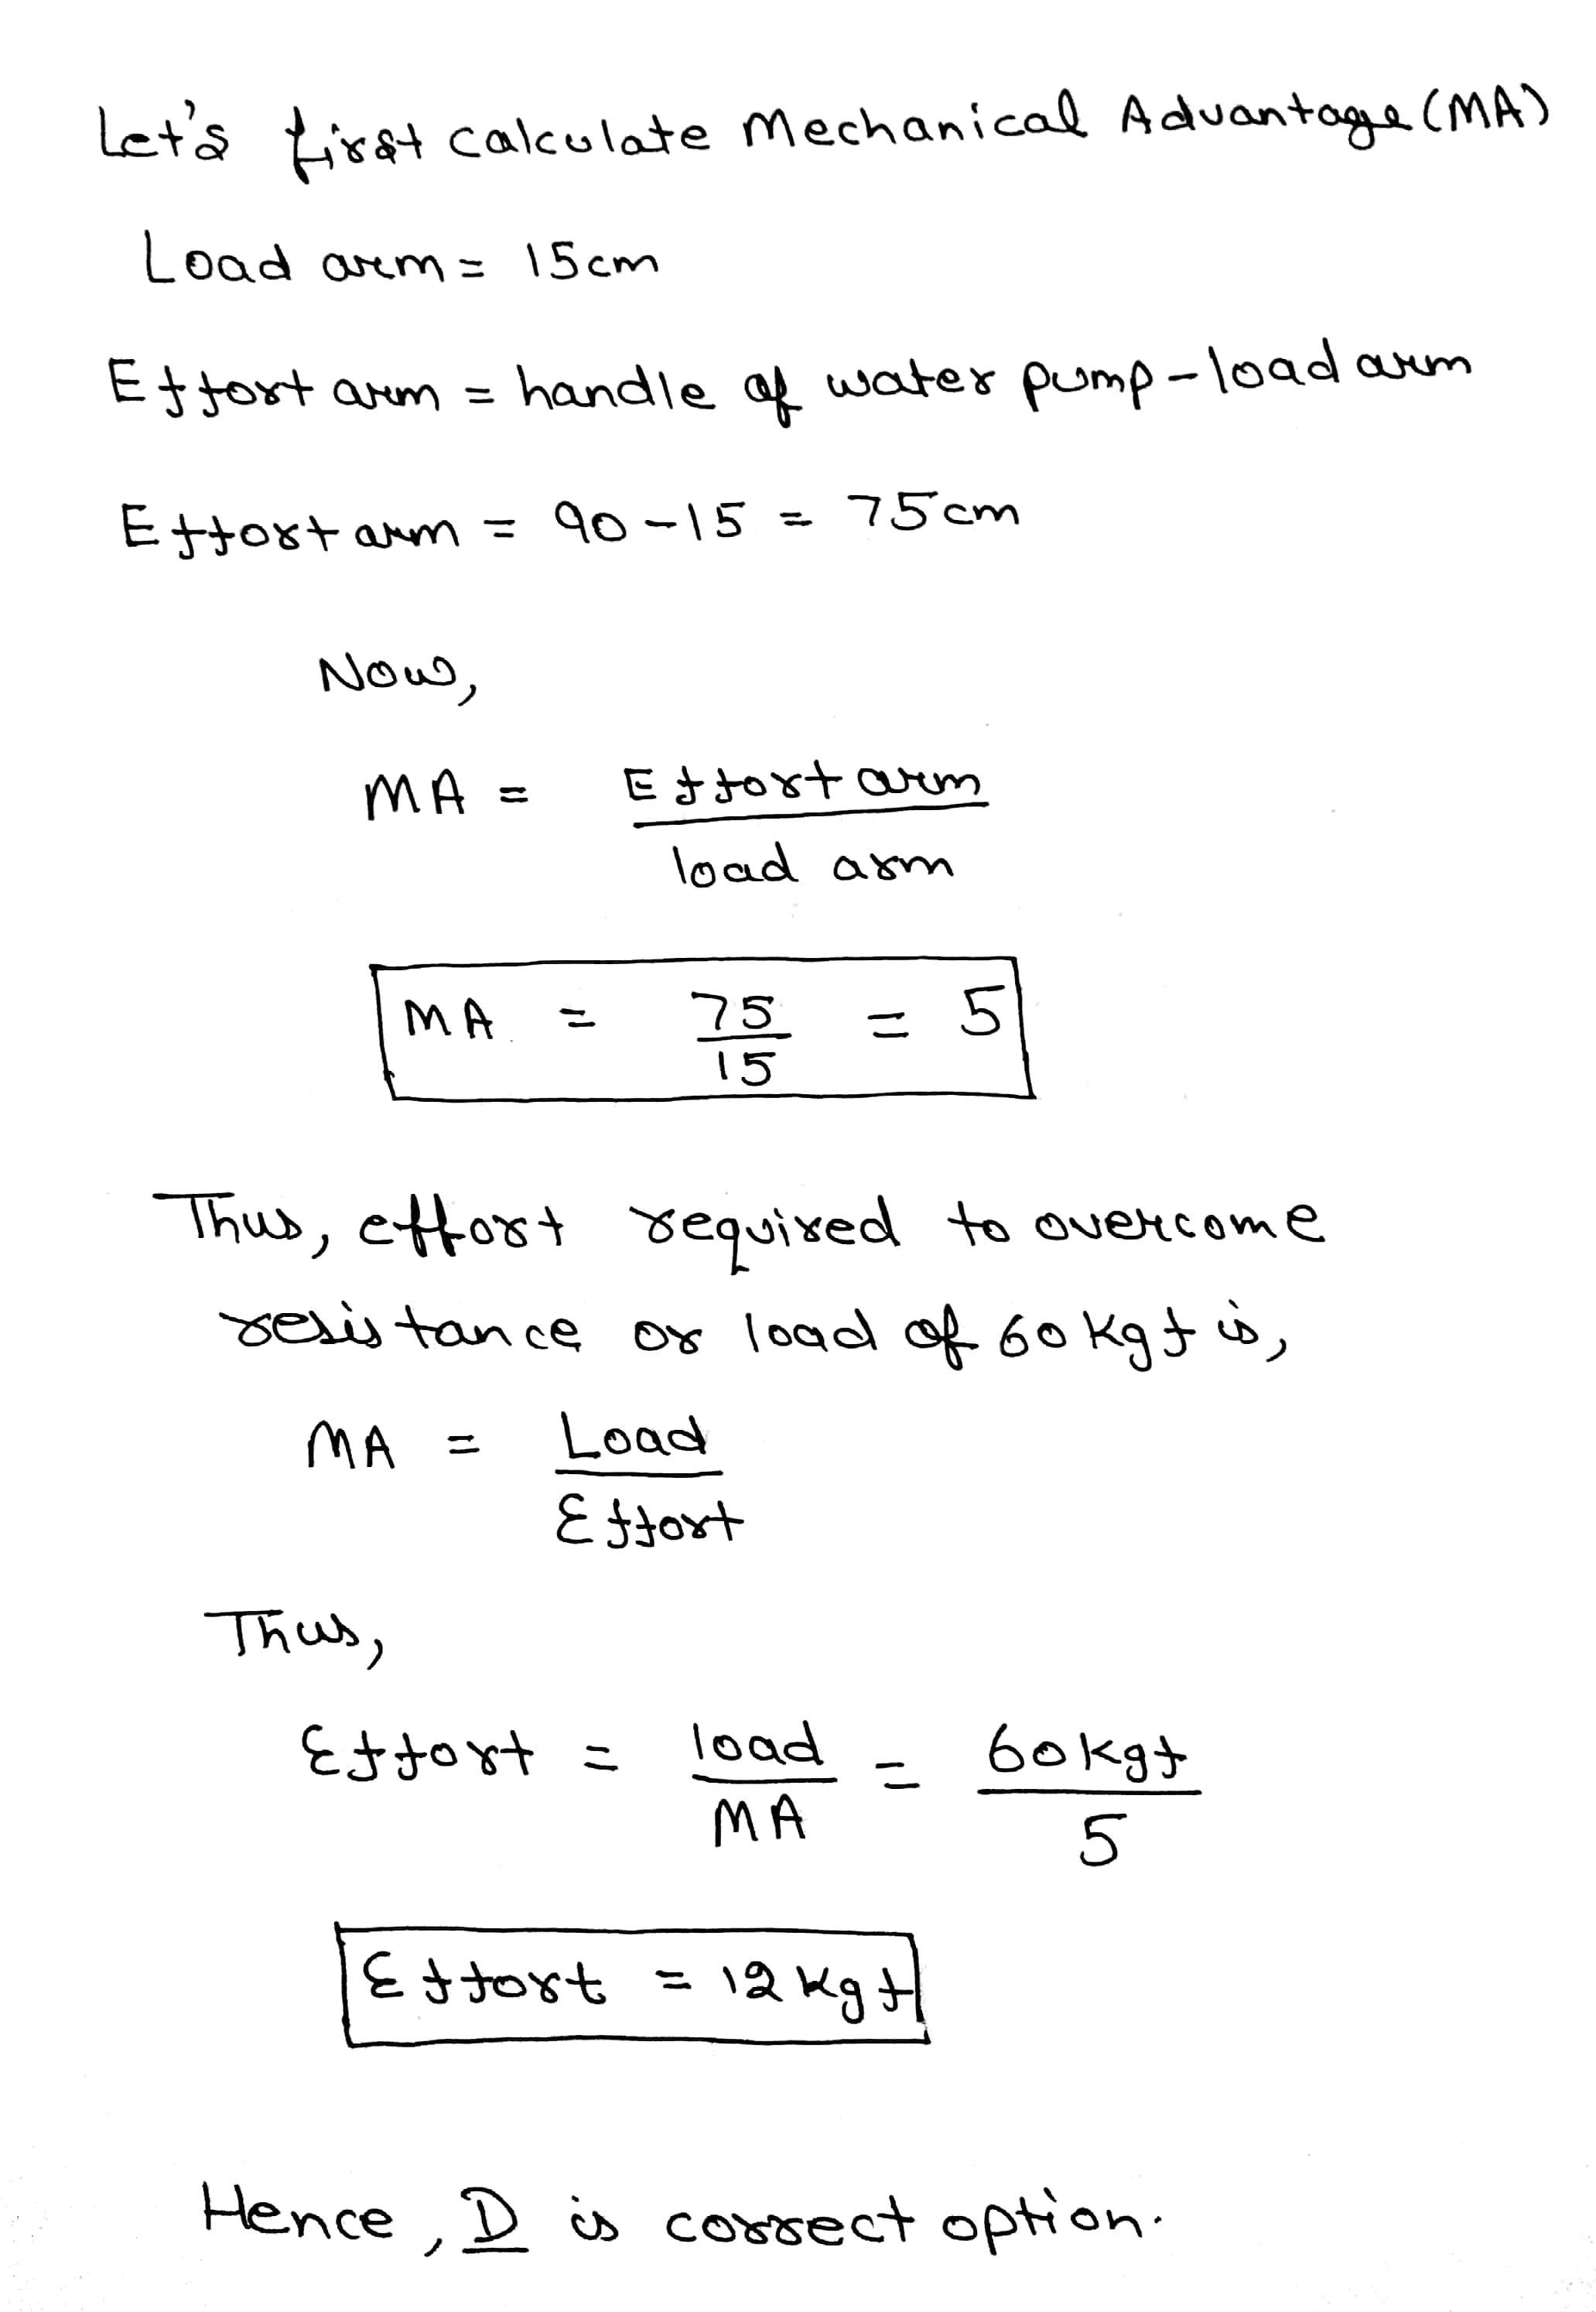 Let's first calculate Mechanical Advantage (MA)
Load arm = 15cm
Effort arm = handle of water pump - load arm
Effort arm = 90 - 15 = 75cm
Now,
MA = Effort arm
load arm
MA = 75 = 5
15
Thus, effort required to overcome
resistance or load of 60 kgf is,
MA = Load
Effort
Thus,
Effort = load = 60kgf
MA 5
Effort = 12 kgf
Hence, D is correct option.